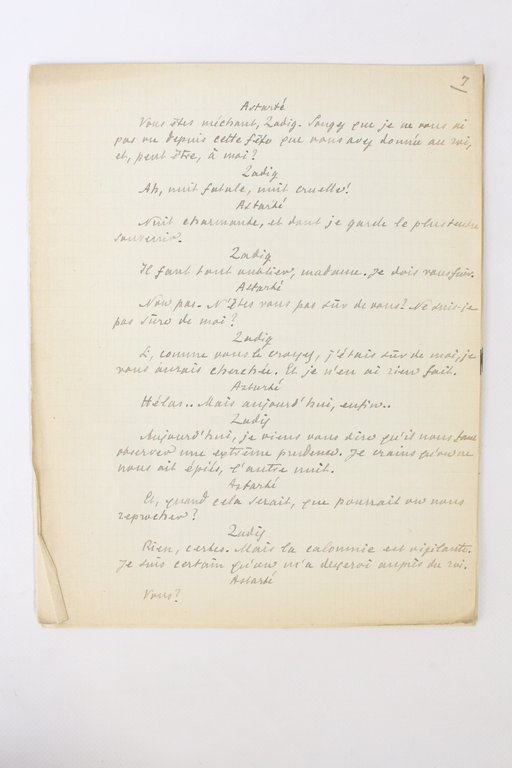 7
Astarté
Vous êtes méchant, Zadig. Songez que je ne vous ai
pas vu depuis cette fête que vous avez donnée au roi,
et, peut être, à moi?
Zadig
Ah, nuit fatale, nuit cruelle!
Astarté
Nuit charmante, et dont je garde le plus tendre
souvenir.
Zadig
Il faut tout oublier, madame. Je dois vous fuir.
Astarté
Non pas. N'êtes vous pas sûr de vous? Ne suis-je
pas sûre de moi?
Zadig
Si, comme vous le croyez, j'étais sûr de moi, je
vous aurais cherchée. Et je n'en ai rien fait.
Astarté
Hélas.. Mais aujourd'hui, enfin..
Zadig
Aujourd'hui, je viens vous dire qu'il nous faut
observer une extrême prudence. Je crains qu'on ne
nous ait épiés, l'autre nuit.
Astarté
Et, quand cela serait, que pourrait on nous
reprocher?
Zadig
Rien, certes. Mais la calomnie est vigilante.
Je suis certain qu'on m'a desservi auprès du roi.
Astarté
Vous?